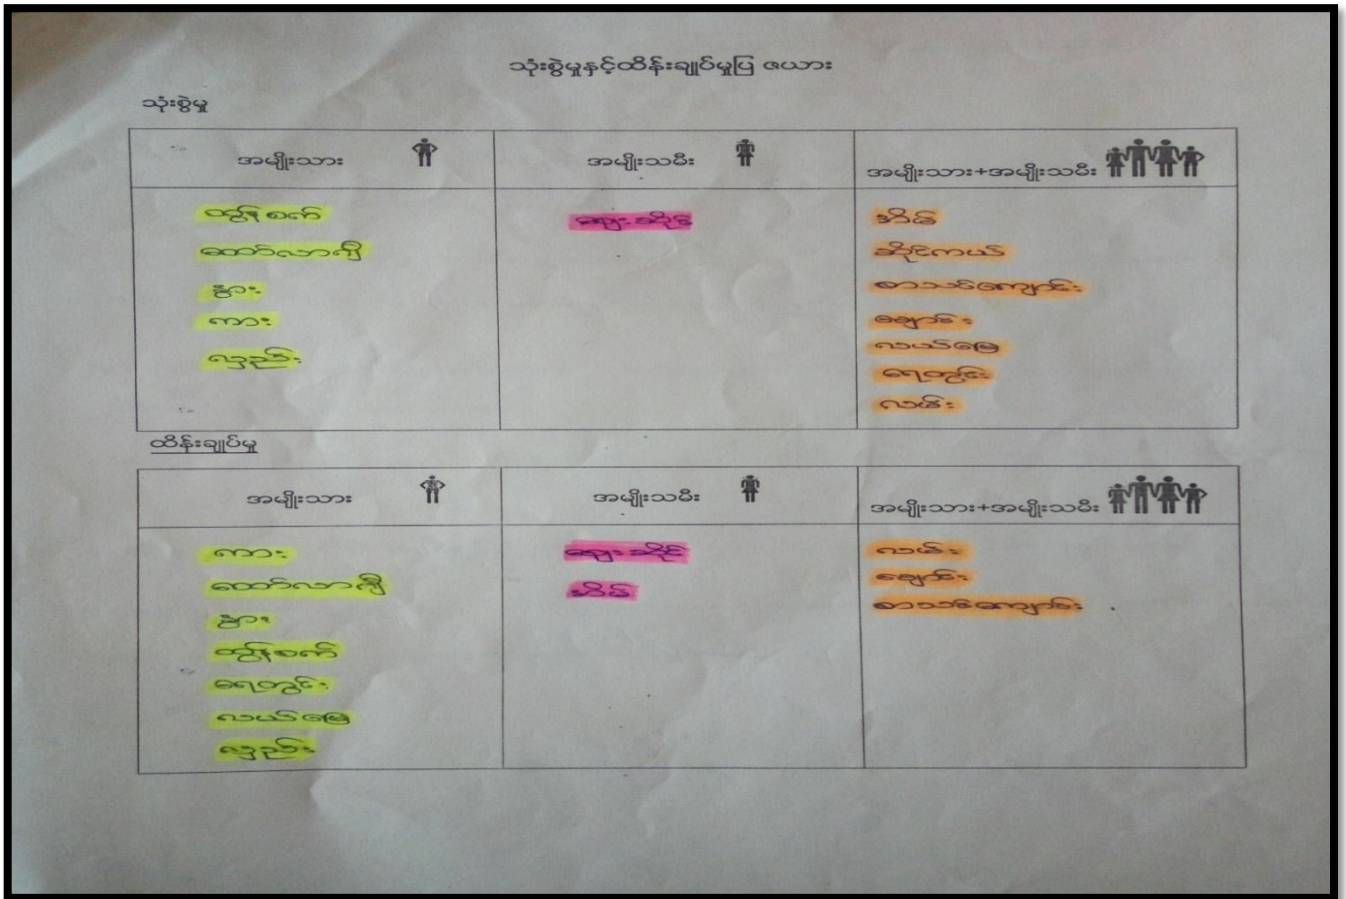 သုံးစွဲမှုနှင့်ထိန်းချုပ်မှုပြ ဇယား
သုံးစွဲမှု
အမျိုးသား အမျိုးသမီး အမျိုးသား+အမျိုးသမီး
ထွန်စက် ဈေးဆိုင် အိမ်
ထော်လာဂျီ ဆိုင်ကယ်
နွား စာသင်ကျောင်း
ကား ချောင်း
လှည်း လယ်မြေ
ရေတွင်း
လမ်း
ထိန်းချုပ်မှု
အမျိုးသား အမျိုးသမီး အမျိုးသား+အမျိုးသမီး
ကား ဈေးဆိုင် လမ်း
ထော်လာဂျီ အိမ် ချောင်း
နွား စာသင်ကျောင်း
ထွန်စက်
ရေတွင်း
လယ်မြေ
လှည်း